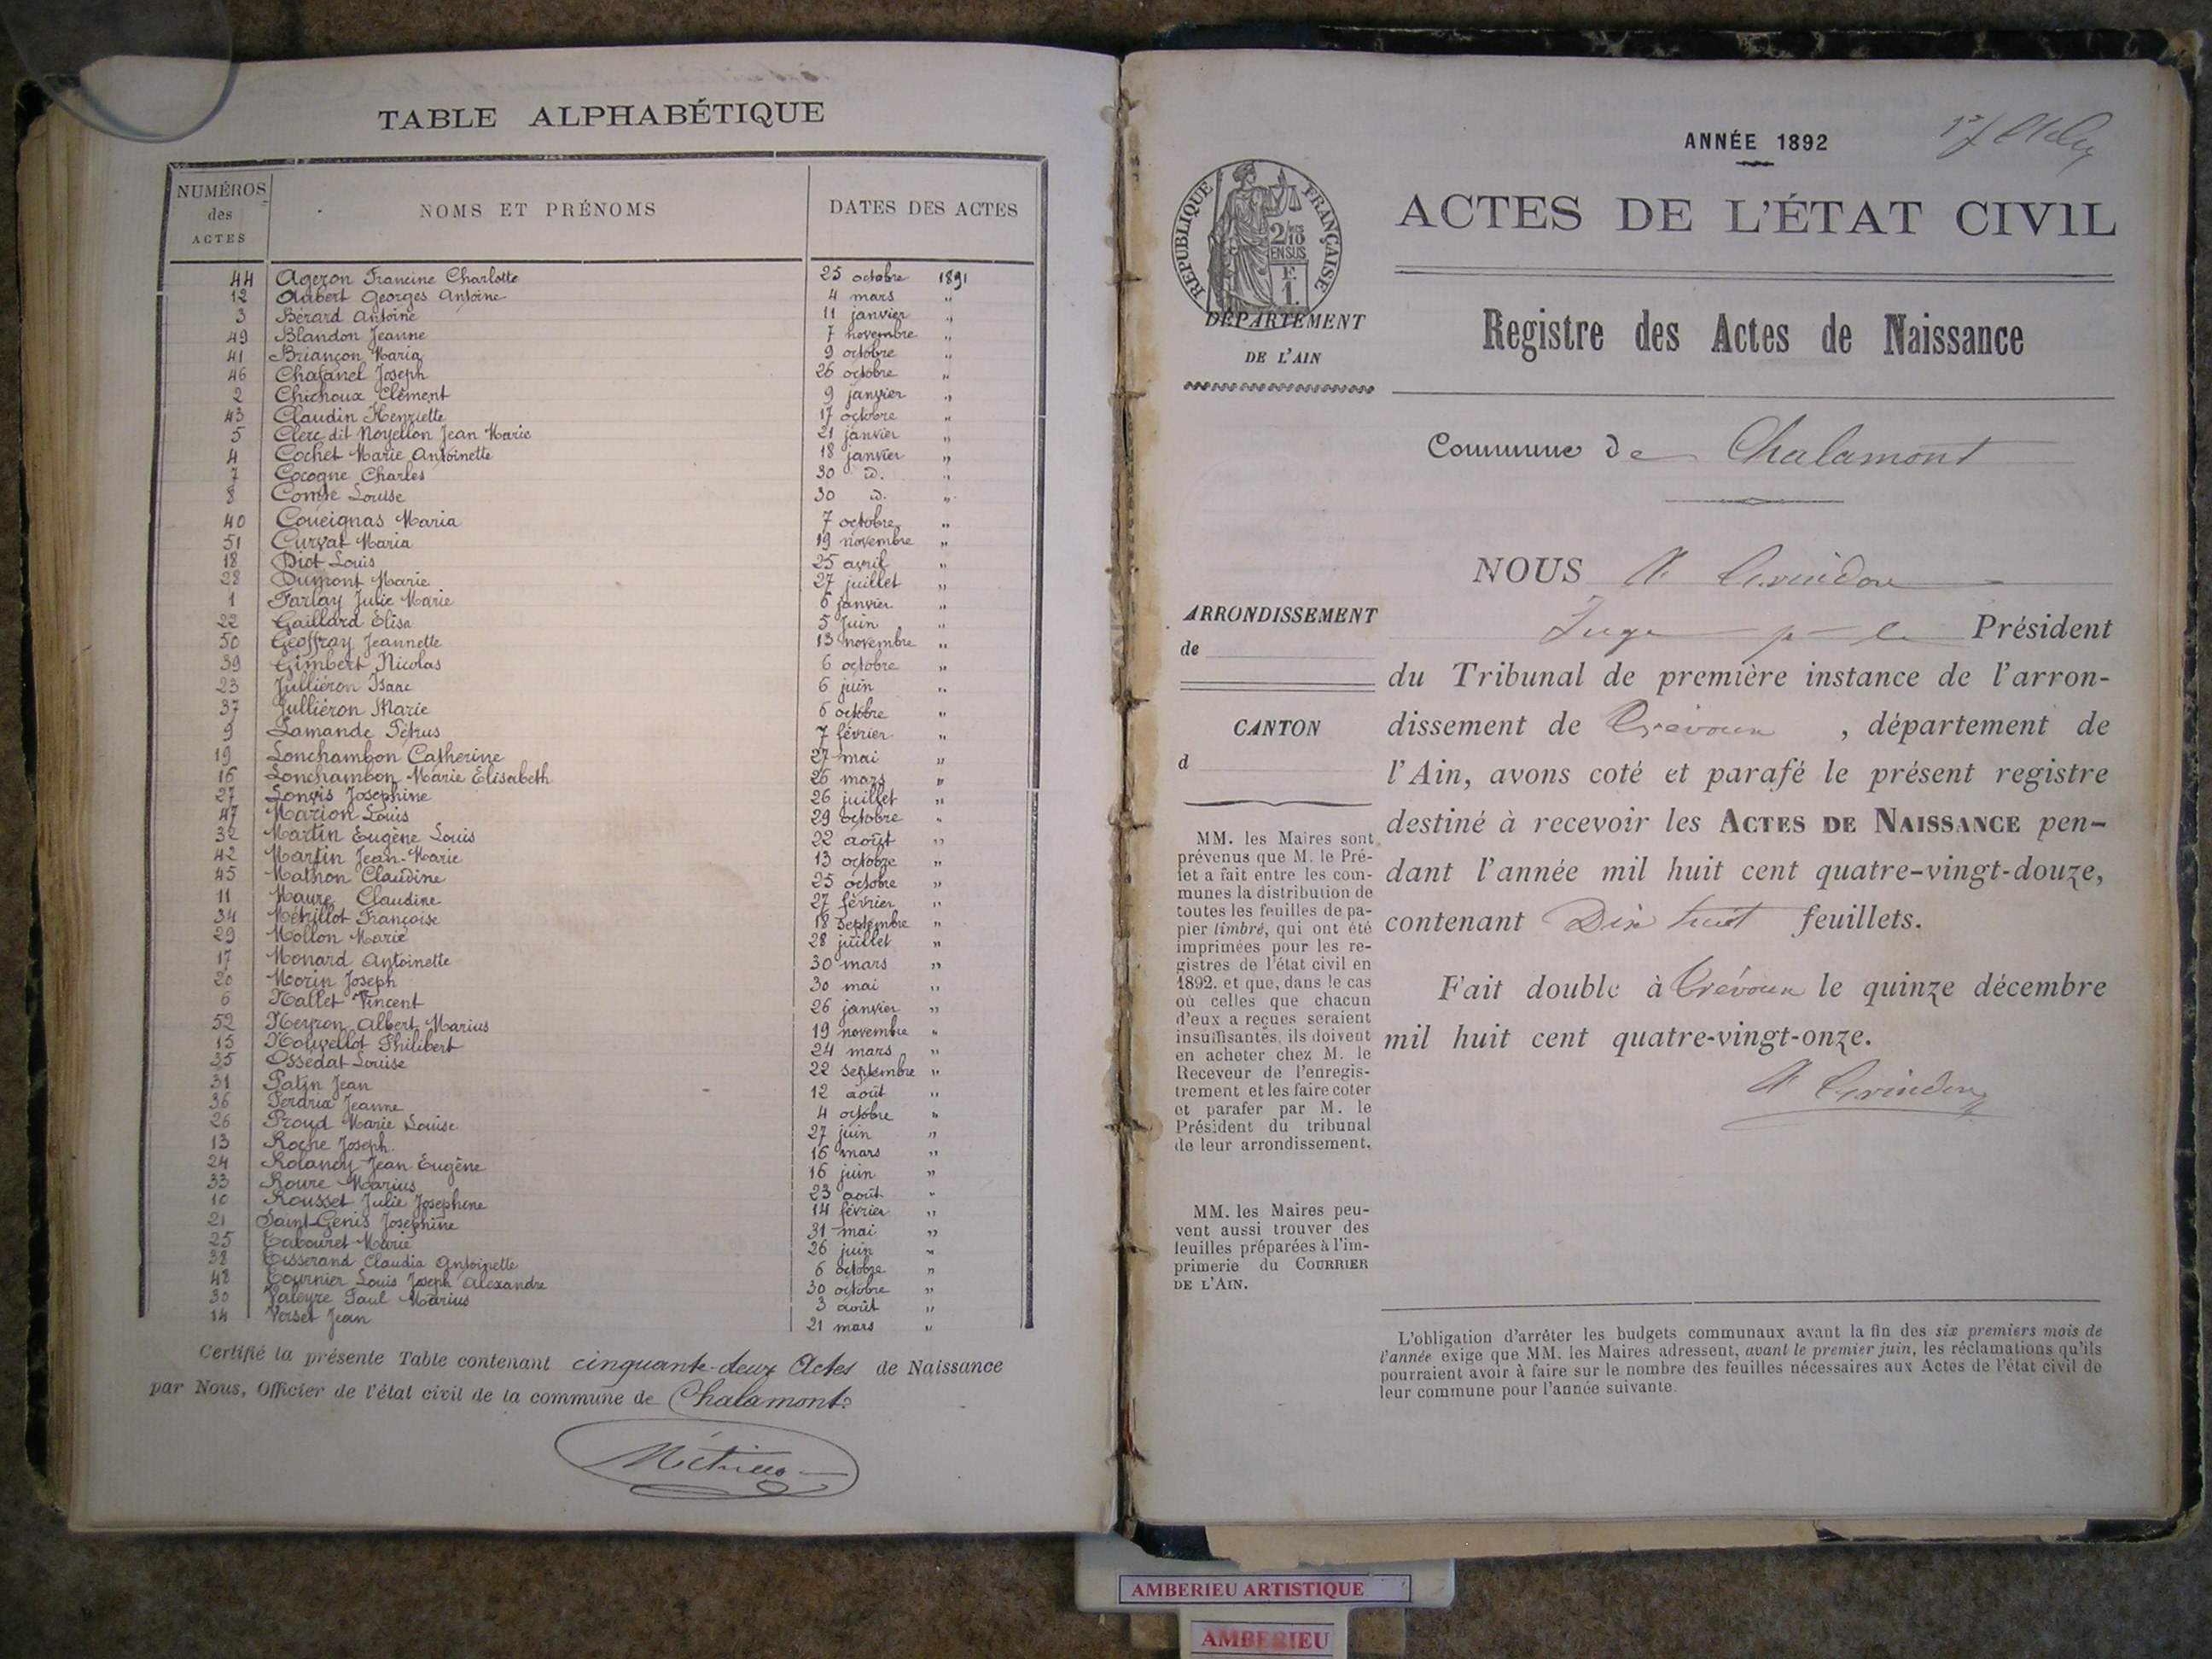 TABLE ALPHABÉTIQUE
NUMÉROS des ACTES NOMS ET PRÉNOMS DATES DES ACTES
44 Ageron Francine Charlotte 25 octobre 1891
12 Aubert Georges Antoine 4 mars "
3 Bérard Antoine 11 janvier "
49 Blandon Jeanne 7 novembre "
41 Briançon Maria 9 octobre "
46 Chafanel Joseph 26 octobre "
2 Chichoux Clément 9 janvier "
43 Claudin Henriette 17 octobre "
5 Clerc dit Noyellon Jean Marie 21 janvier "
4 Cochet Marie Antoinette 18 janvier "
7 Cocogne Charles 30 id. "
8 Comte Louise 30 id. "
40 Coueignas Maria 7 octobre "
51 Curvat Maria 19 novembre "
18 Diot Louis 25 avril "
28 Dumont Marie 27 juillet "
1 Farlay Julie Marie 6 janvier "
22 Gaillard Elisa 5 juin "
50 Geoffray Jeannette 13 novembre "
39 Gimbert Nicolas 6 octobre "
23 Julliéron Isaac 6 juin "
37 Julliéron Marie 6 octobre "
9 Lamande Pétrus 7 février "
19 Lonchambon Catherine 27 mai "
16 Lonchambon Marie Elisabeth 26 mars "
27 Lonvis Josephine 26 juillet "
47 Marion Louis 29 octobre "
32 Martin Eugène Louis 22 août "
42 Martin Jean-Marie 13 octobre "
45 Mathon Claudine 25 octobre "
11 Maure Claudine 27 février "
34 Métrillot Françoise 18 septembre "
29 Mollon Marie 28 juillet "
17 Monard Antoinette 30 mars "
20 Morin Joseph 30 mai "
6 Nallet Vincent 26 janvier "
52 Neyron Albert Marius 19 novembre "
15 Nouvellot Philibert 24 mars "
35 Ossedat Louise 22 septembre "
31 Patin Jean 12 août "
36 Perdrix Jeanne 4 octobre "
26 Proud Marie Louise 27 juin "
13 Roche Joseph 16 mars "
24 Rolandy Jean Eugène 16 juin "
33 Roure Marius 23 août "
10 Rousset Julie Josephine 14 février "
21 Saint-Genis Josephine 31 mai "
25 Tabouret Marie 26 juin "
38 Tisserand Claudia Antoinette 6 octobre "
48 Tournier Louis Joseph Alexandre 30 octobre "
30 Valeyre Paul Marius 3 août "
14 Verset Jean 21 mars "
Certifié la présente Table contenant cinquante-deux Actes de Naissance
par Nous, Officier de l'état civil de la commune de Chalamont
ANNÉE 1892
RÉPUBLIQUE FRANÇAISE
2/10 EN SUS
F. 1.
ACTES DE L'ÉTAT CIVIL
DÉPARTEMENT
DE L'AIN
Registre des Actes de Naissance
Commune de Chalamont
NOUS
ARRONDISSEMENT
de
CANTON
d
Juge pr le Président
du Tribunal de première instance de l'arron-
dissement de Trévoux, département de
l'Ain, avons coté et parafé le présent registre
destiné à recevoir les ACTES DE NAISSANCE pen-
dant l'année mil huit cent quatre-vingt-douze,
contenant Dix huit feuillets.
Fait double à Trévoux le quinze décembre
mil huit cent quatre-vingt-onze.
MM. les Maires sont
prévenus que M. le Pré-
fet a fait entre les com-
munes la distribution de
toutes les feuilles de pa-
pier timbré, qui ont été
imprimées pour les re-
gistres de l'état civil en
1892. et que, dans le cas
où celles que chacun
d'eux a reçues seraient
insuffisantes, ils doivent
en acheter chez M. le
Receveur de l'enregis-
trement et les faire coter
et parafer par M. le
Président du tribunal
de leur arrondissement.
MM. les Maires peu-
vent aussi trouver des
feuilles préparées à l'im-
primerie du COURRIER
DE L'AIN.
L'obligation d'arrêter les budgets communaux avant la fin des six premiers mois de
l'année exige que MM. les Maires adressent, avant le premier juin, les réclamations qu'ils
pourraient avoir à faire sur le nombre des feuilles nécessaires aux Actes de l'état civil de
leur commune pour l'année suivante.
AMBERIEU ARTISTIQUE
AMBERIEU